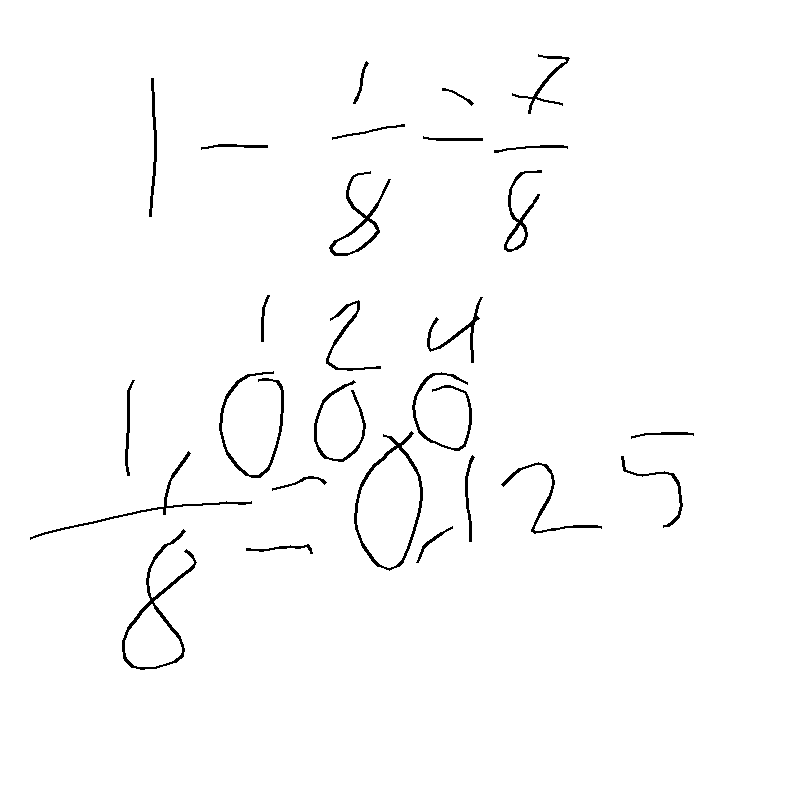 1 - 1/8 = 7/8
1 2 4
1,000/8 = 0,125